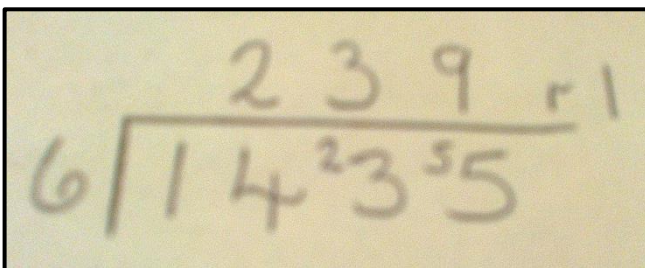 2 3 9 r 1
6 1 4 ²3 ⁵5